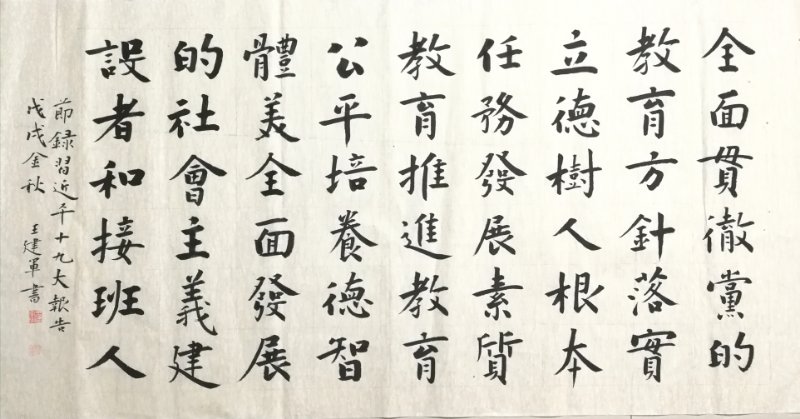 全面貫徹黨的
教育方針落實
立德樹人根本
任務發展素質
教育推進教育
公平培養德智
體美全面發展
的社會主義建
設者和接班人
節録習近平十九大報告
戊戌金秋 王建軍書